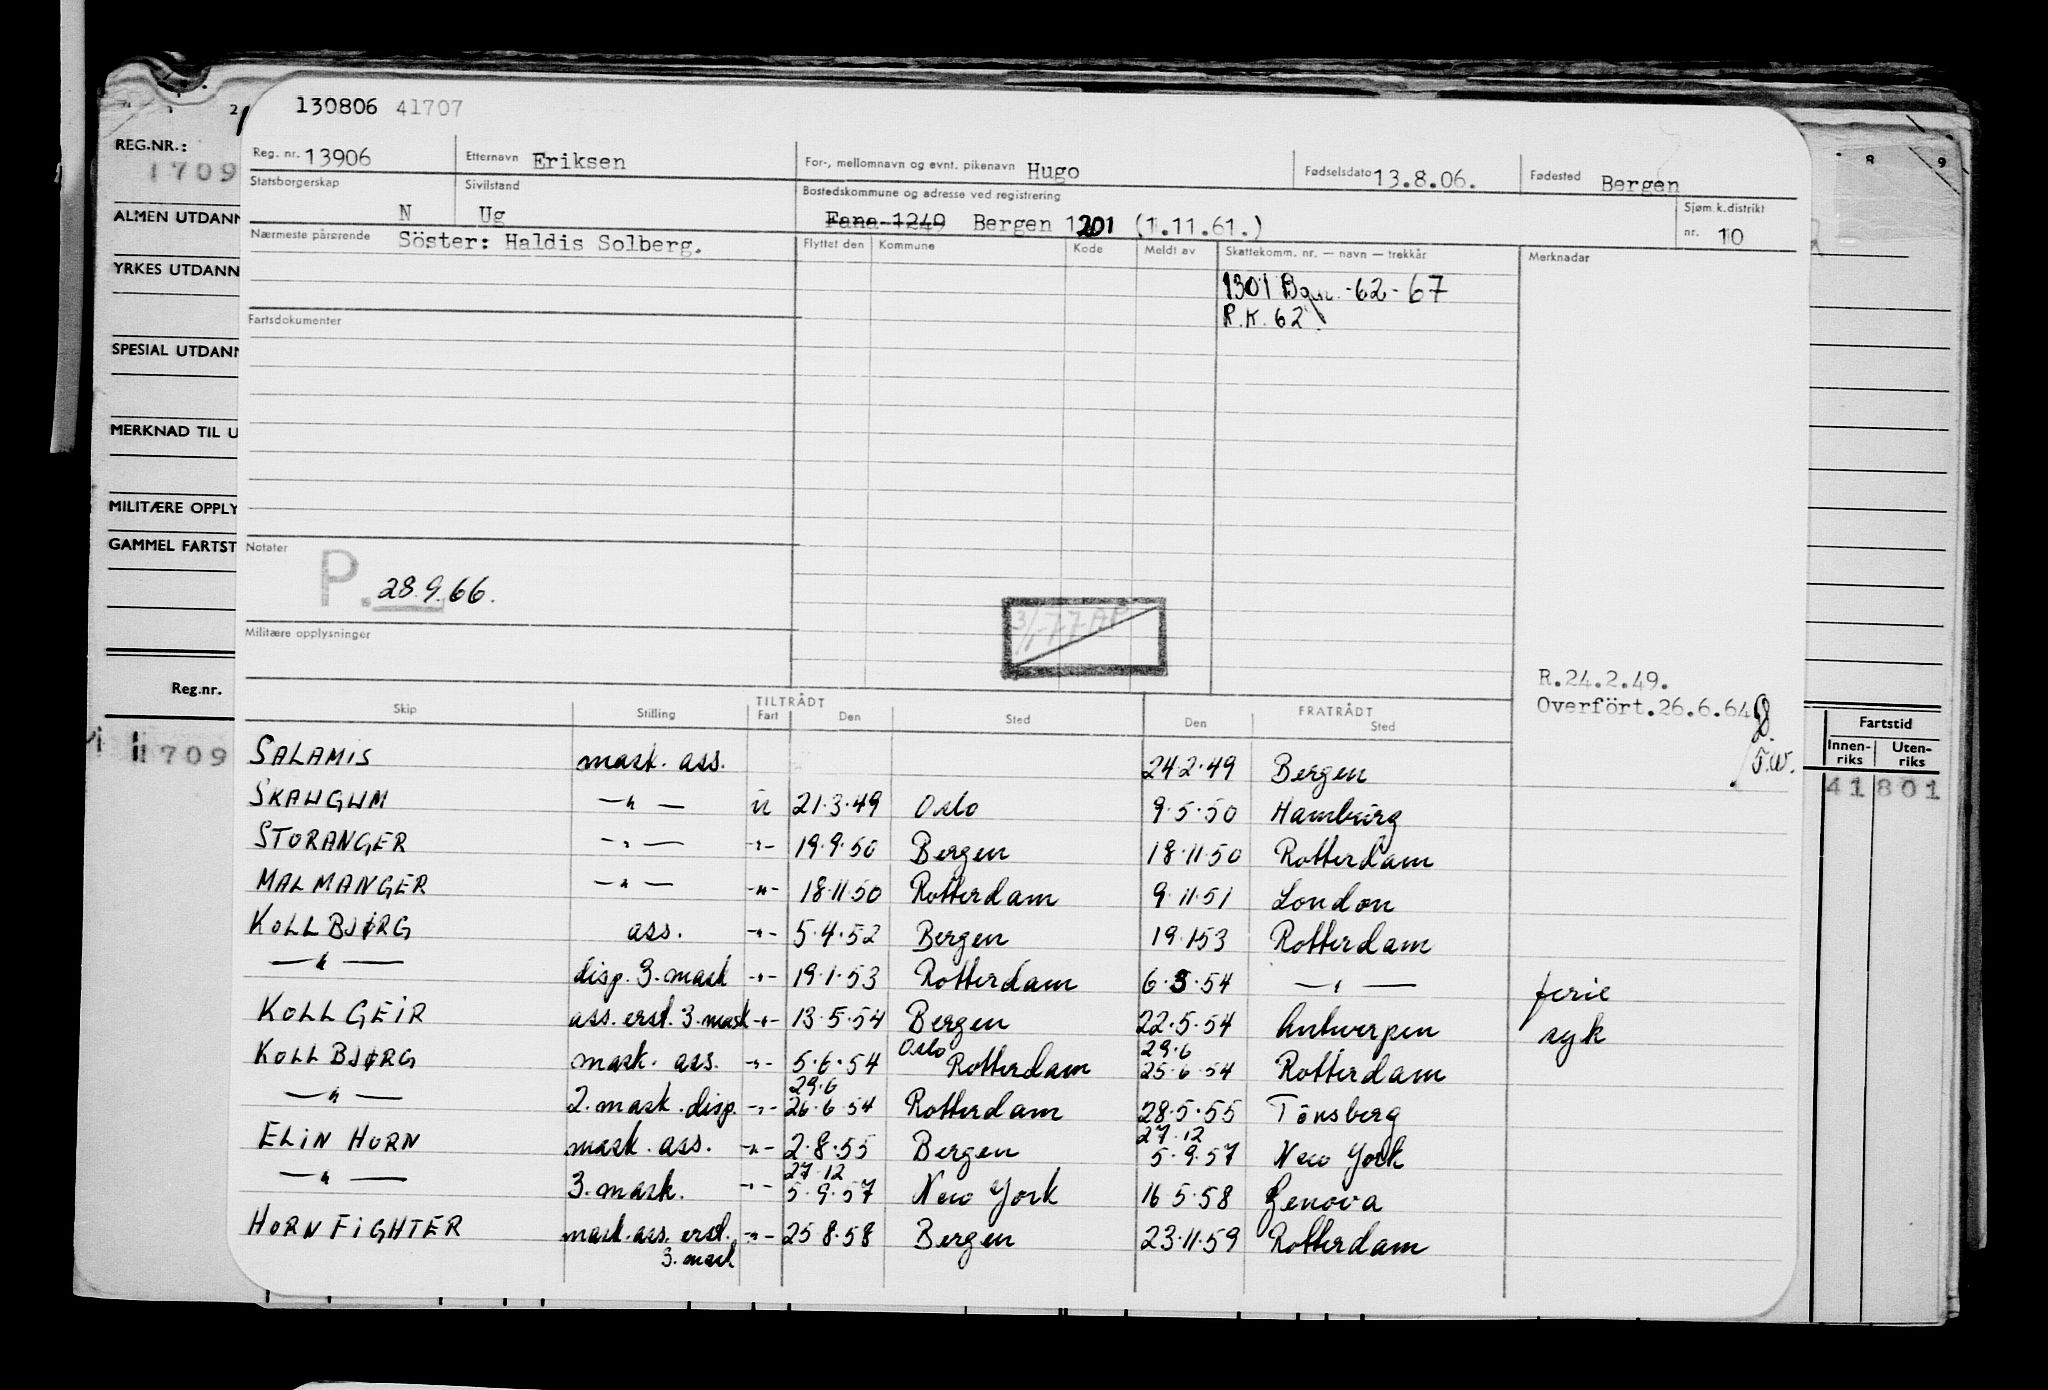 130806 41707
Reg. nr. 13906 Etternavn Eriksen For-, mellomnavn og evnt. pikenavn Hugo Fødselsdato 13.8.06. Fødested Bergen
Statsborgerskap N Sivilstand Ug Bostedskommune og adresse ved registrering Fana 1249 Bergen 1201 (1.11.61.) Sjøm.k.distrikt nr. 10
Nærmeste pårørende Söster: Haldis Solberg. Flyttet den Kommune Kode Meldt av Skattekomm. nr. — navn — trekkår Merknadar
1301 -62-67
P.K. 62
Fartsdokumenter
Notater
P. 28.9.66.
Militære opplysninger
R.24.2.49.
Overfört.26.6.64
T.W.
TILTRÅDT FRATRÅDT
Skip Stilling Fart Den Sted Den Sted
SALAMIS mask. ass. 24.2.49 Bergen
SKAUGUM —"— u 21.3.49 Oslo 9.5.50 Hamburg
STORANGER —"— -"- 19.9.50 Bergen 18.11.50 Rotterdam
MALMANGER —"— -"- 18.11.50 Rotterdam 9.11.51 London
KOLLBJØRG ass. -"- 5.4.52 Bergen 19.1.53 Rotterdam
—"— disp. 3. mask -"- 19.1.53 Rotterdam 6.3.54 —"— ferie
KOLLGEIR ass. erst. 3. mask -"- 13.5.54 Bergen 22.5.54 Antwerpen syk
KOLLBJØRG mask. ass. -"- 5.6.54 Oslo Rotterdam 29.6 25.6.54 Rotterdam
—"— 2. mask. disp. -"- 29.6 26.6.54 Rotterdam 28.5.55 Tönsberg
ELIN HORN mask. ass. -"- 2.8.55 Bergen 27.12 5.9.57 New York
—"— 3. mask. -"- 27.12 5.9.57 New York 16.5.58 Genova
HORN FIGHTER mask. ass. erst. 3. mask -"- 25.8.58 Bergen 23.11.59 Rotterdam
REG.NR.:
1709
ALMEN UTDANN
YRKES UTDANN
SPESIAL UTDANN
MERKNAD TIL U
MILITÆRE OPPLY
GAMMEL FARTST
Reg.nr.
1709
8 9
Fartstid
Innen-riks Uten-riks
41801